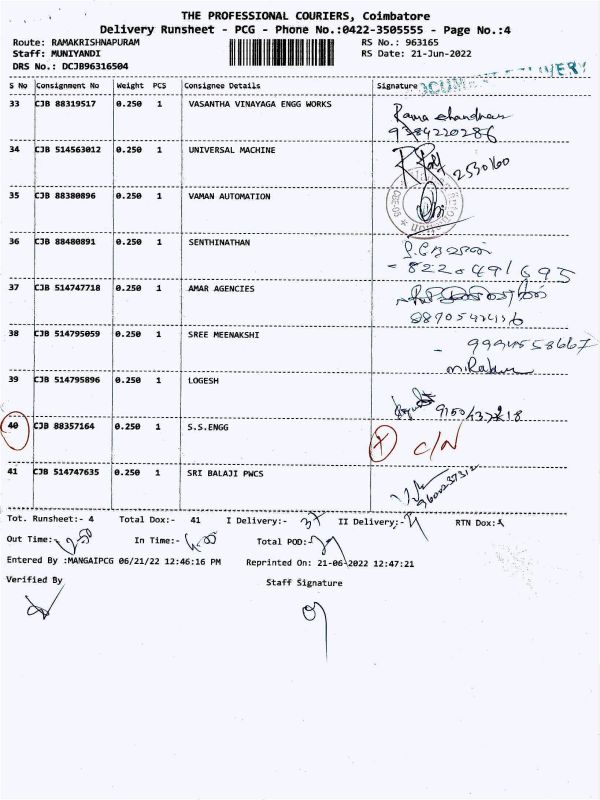 THE PROFESSIONAL COURIERS, Coimbatore
Delivery Runsheet - PCG - Phone No.:0422-3505555 - Page No.:4
Route: RAMAKRISHNAPURAM RS No.: 963165
Staff: MUNIYANDI RS Date: 21-Jun-2022
DRS No.: DCJB96316504
S No Consignment No Weight PCS Consignee Details Signature
33 CJB 88319517 0.250 1 VASANTHA VINAYAGA ENGG WORKS
Rama chandran
9384220286
34 CJB 514563012 0.250 1 UNIVERSAL MACHINE
2530160
35 CJB 88380896 0.250 1 VAMAN AUTOMATION
36 CJB 88480891 0.250 1 SENTHINATHAN
8220491695
37 CJB 514747718 0.250 1 AMAR AGENCIES
38 CJB 514795059 0.250 1 SREE MEENAKSHI
39 CJB 514795896 0.250 1 LOGESH
40 CJB 88357164 0.250 1 S.S.ENGG X C/N
41 CJB 514747635 0.250 1 SRI BALAJI PWCS
9600237312
Tot. Runsheet:- 4 Total Dox:- 41 I Delivery:- 37 II Delivery:- RTN Dox:-
Out Time:- 2-50 In Time:- Total POD:-
Entered By :MANGAIPCG 06/21/22 12:46:16 PM Reprinted On: 21-06-2022 12:47:21
Verified By Staff Signature